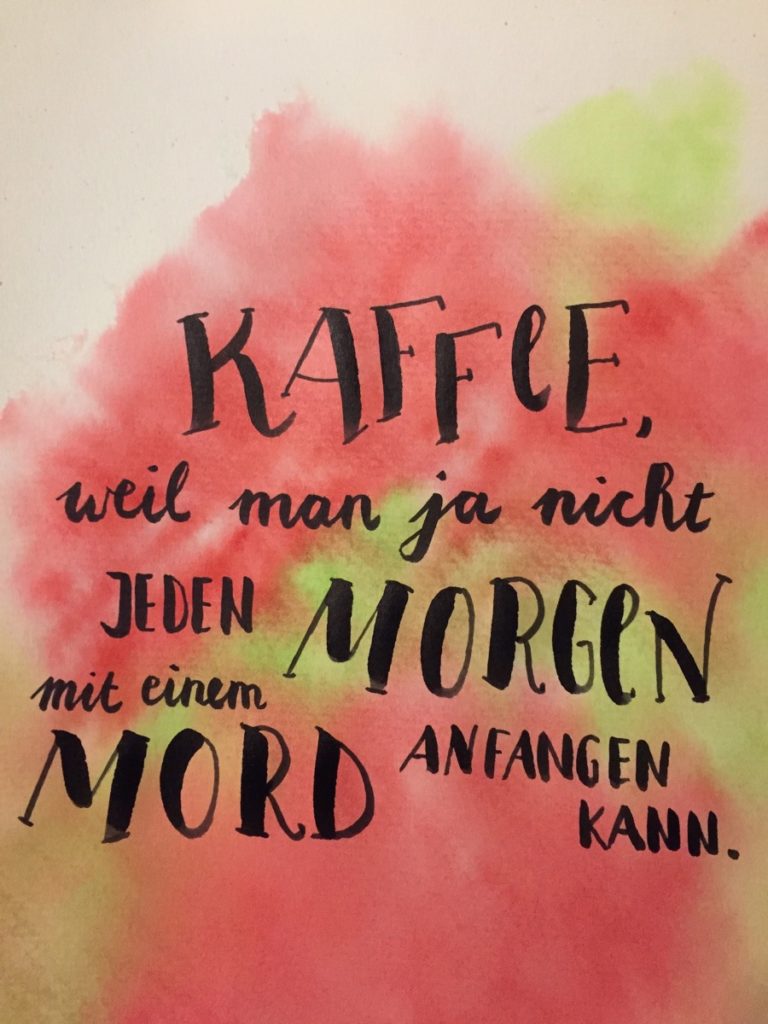 KAFFeE,
weil man ja nicht
JEDEN MORGeN
mit einem
MORD ANFANGEN
KANN.